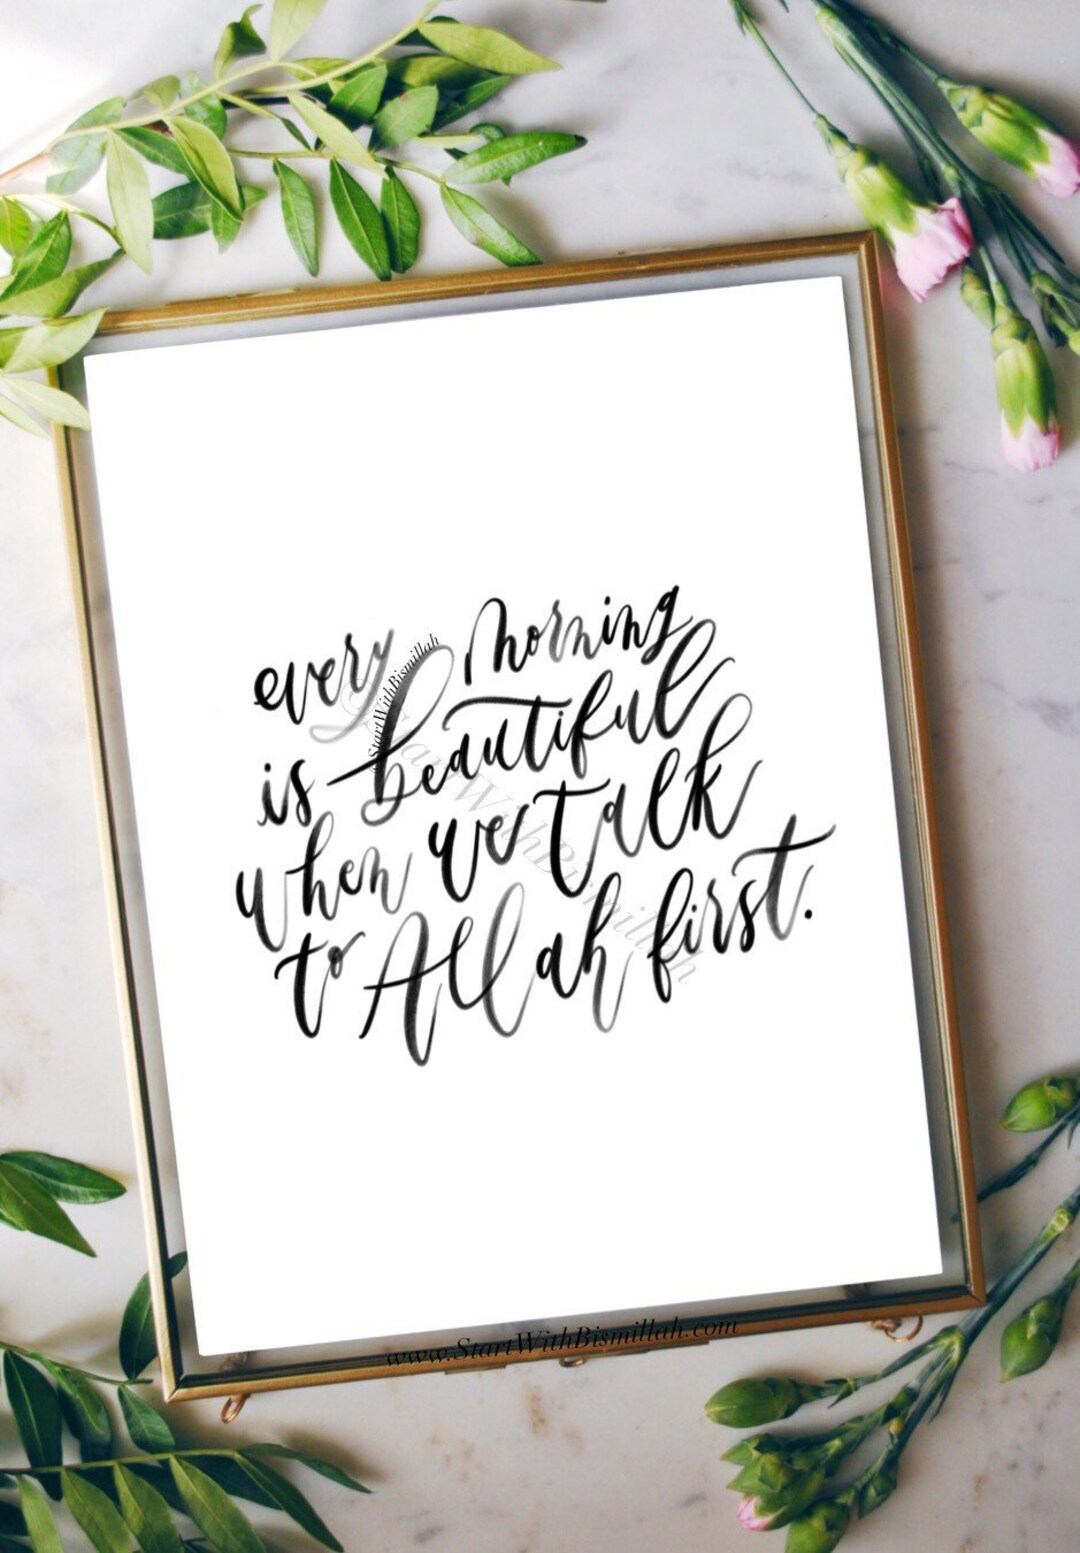 every morning
is beautiful
when we talk
to Allah first.
StartWithBismillah
StartWithBismillah
www.StartWithBismillah.com